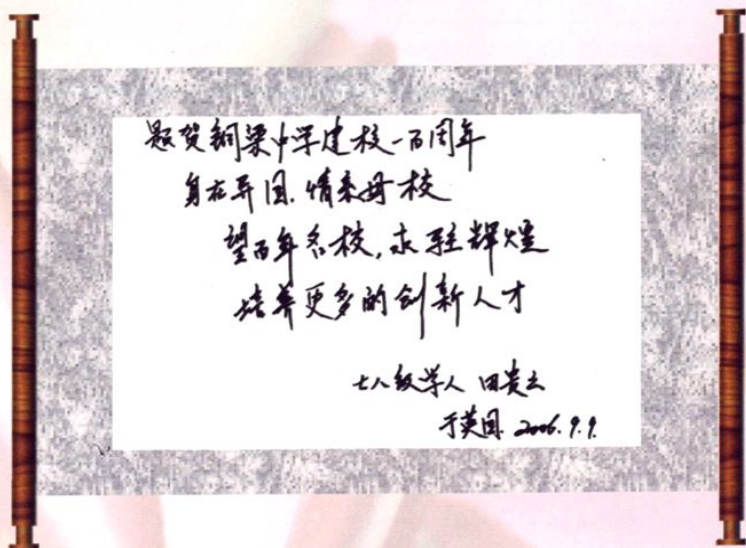 题贺铜梁中学建校一百周年
身在异国.情系母校
望百年名校,永驻辉煌
培养更多的创新人才
七八级学人 田贵云
于英国.2006.9.9.